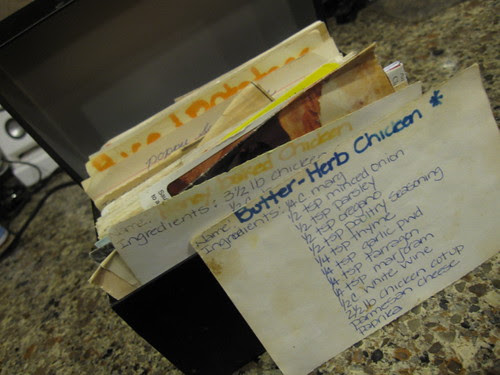 Rice
Poppy
Honey Baked Chicken
Ingredients: 3 1/2 lb chicken
Name: Butter-Herb Chicken *
Ingredients: 1/4 c. marg
1/2 tsp minced onion
1/2 tsp parsley
1/2 tsp oregano
1/2 tsp poultry seasoning
1/4 tsp thyme
1/4 tsp garlic pwd
1/4 tsp tarragon
1/4 tsp marjoram
1/2 c. White Wine
2 1/2 lb chicken cut up
Parmesan Cheese
Paprika